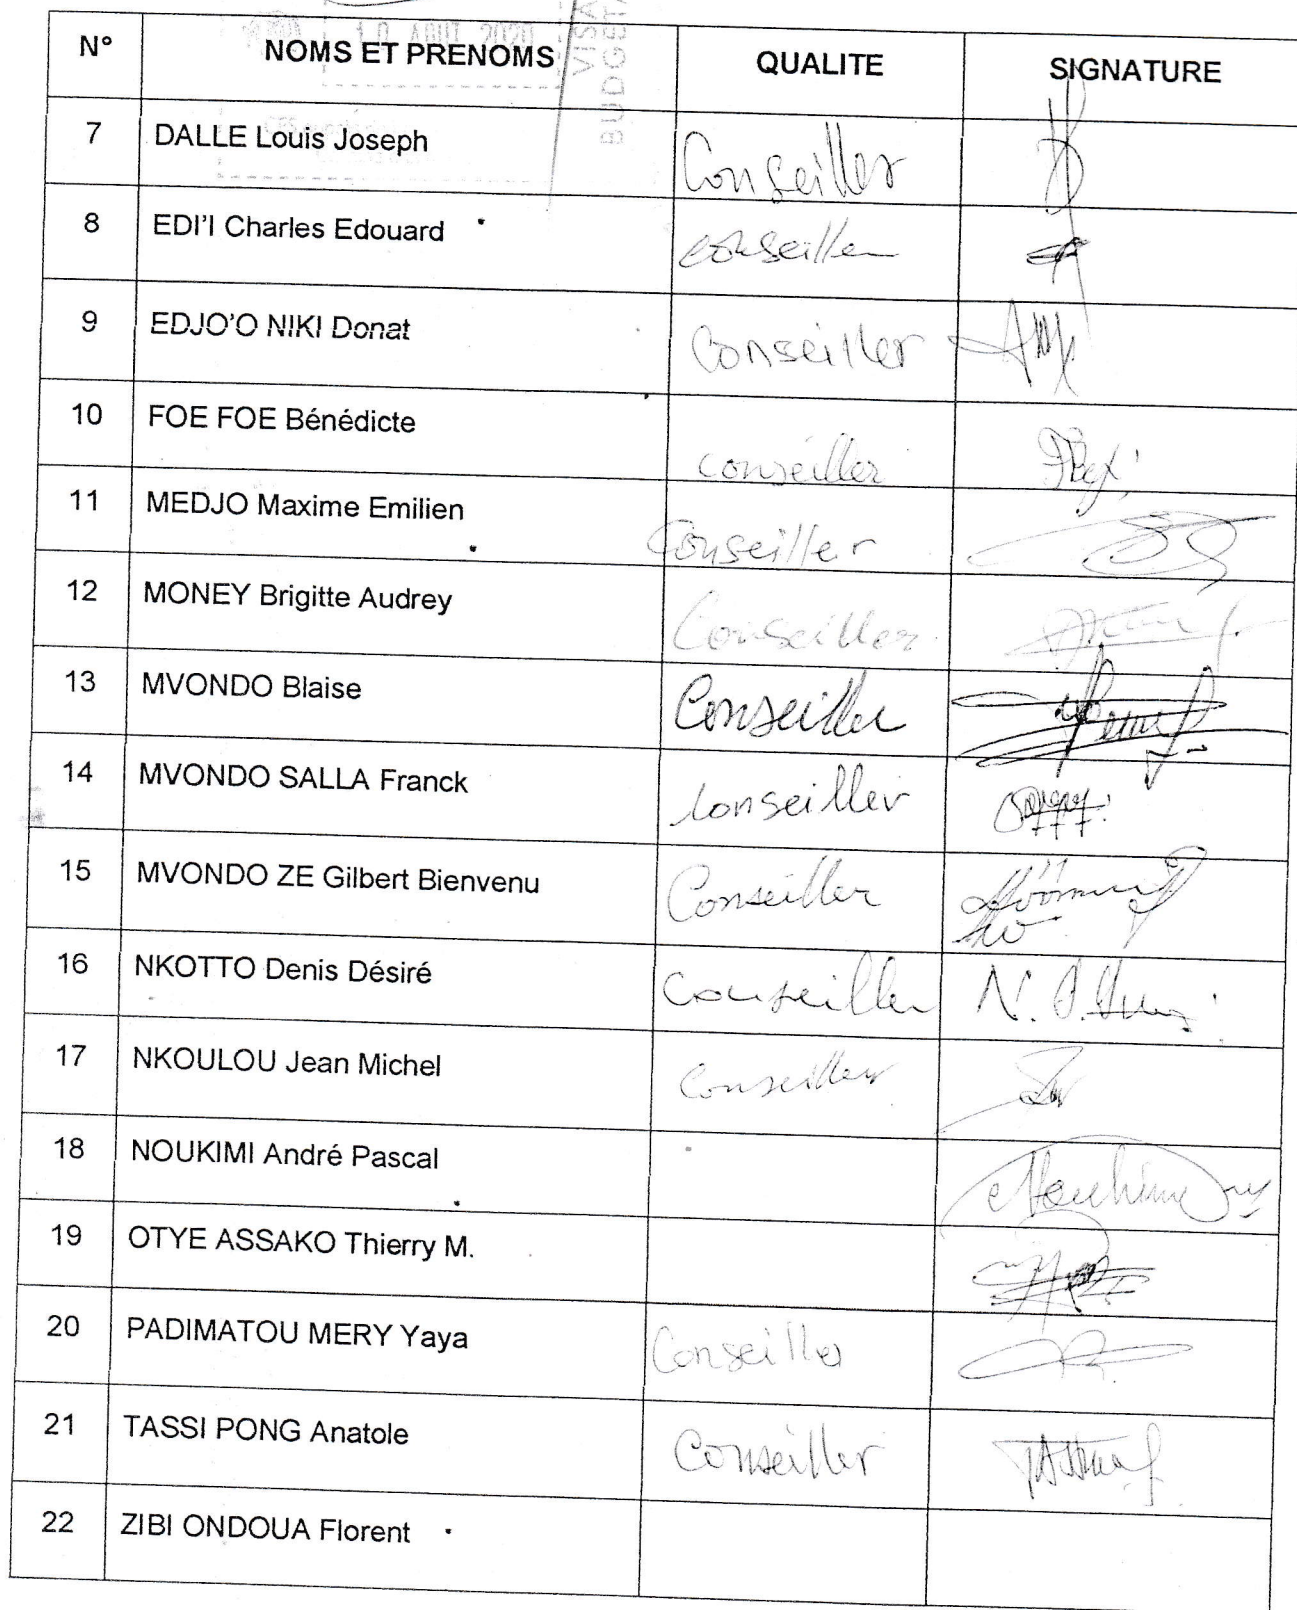 VISA
BUDGETA
10 AOUT 2020
N° NOMS ET PRENOMS QUALITE SIGNATURE
7 DALLE Louis Joseph Conseiller
8 EDI'I Charles Edouard conseiller
9 EDJO'O NIKI Donat Conseiller
10 FOE FOE Bénédicte conseiller
11 MEDJO Maxime Emilien Conseiller
12 MONEY Brigitte Audrey Conseiller
13 MVONDO Blaise Conseiller
14 MVONDO SALLA Franck Conseiller
15 MVONDO ZE Gilbert Bienvenu Conseiller
16 NKOTTO Denis Désiré Conseiller
17 NKOULOU Jean Michel Conseiller
18 NOUKIMI André Pascal
19 OTYE ASSAKO Thierry M.
20 PADIMATOU MERY Yaya Conseiller
21 TASSI PONG Anatole Conseiller
22 ZIBI ONDOUA Florent